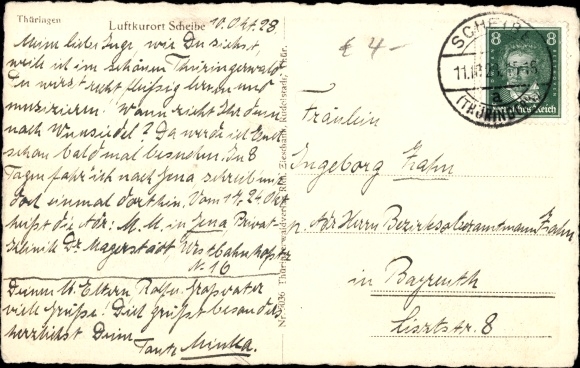 Thüringen
Luftkurort Scheibe 10. Okt. 28
Meine liebe Inge, wie Du siehst,
weile ich im schönen Thüringerwald
Du wirst recht fleißig lernen und
musizieren! Wann zieht Ihr denn
nach Wunsiedel? Da werde ich Euch
schon bald mal besuchen. In 8
Tagen fahr ich nach Jena schreib mir
doch einmal dorthin. Vom 17.-24. Okt
heißt die Adr: M. M. in Jena Privat-
klinik Dr. Magerstädt, Westbahnhofstr
N. 16
Deinen l. Eltern Großvater
viele Grüße! Dich grüßt besonders
herzlichst Deine
Tante Minka.
€ 4-
SCHEIBE
11.10.
a
(THÜRING
8 8
Deutsches Reich
Fräulein
Ingeborg Zahn
p. Adr Herrn Bezirksoberamtmann Zahn
in Bayreuth
Lisztstr. 8
Rudolstadt, Thür.